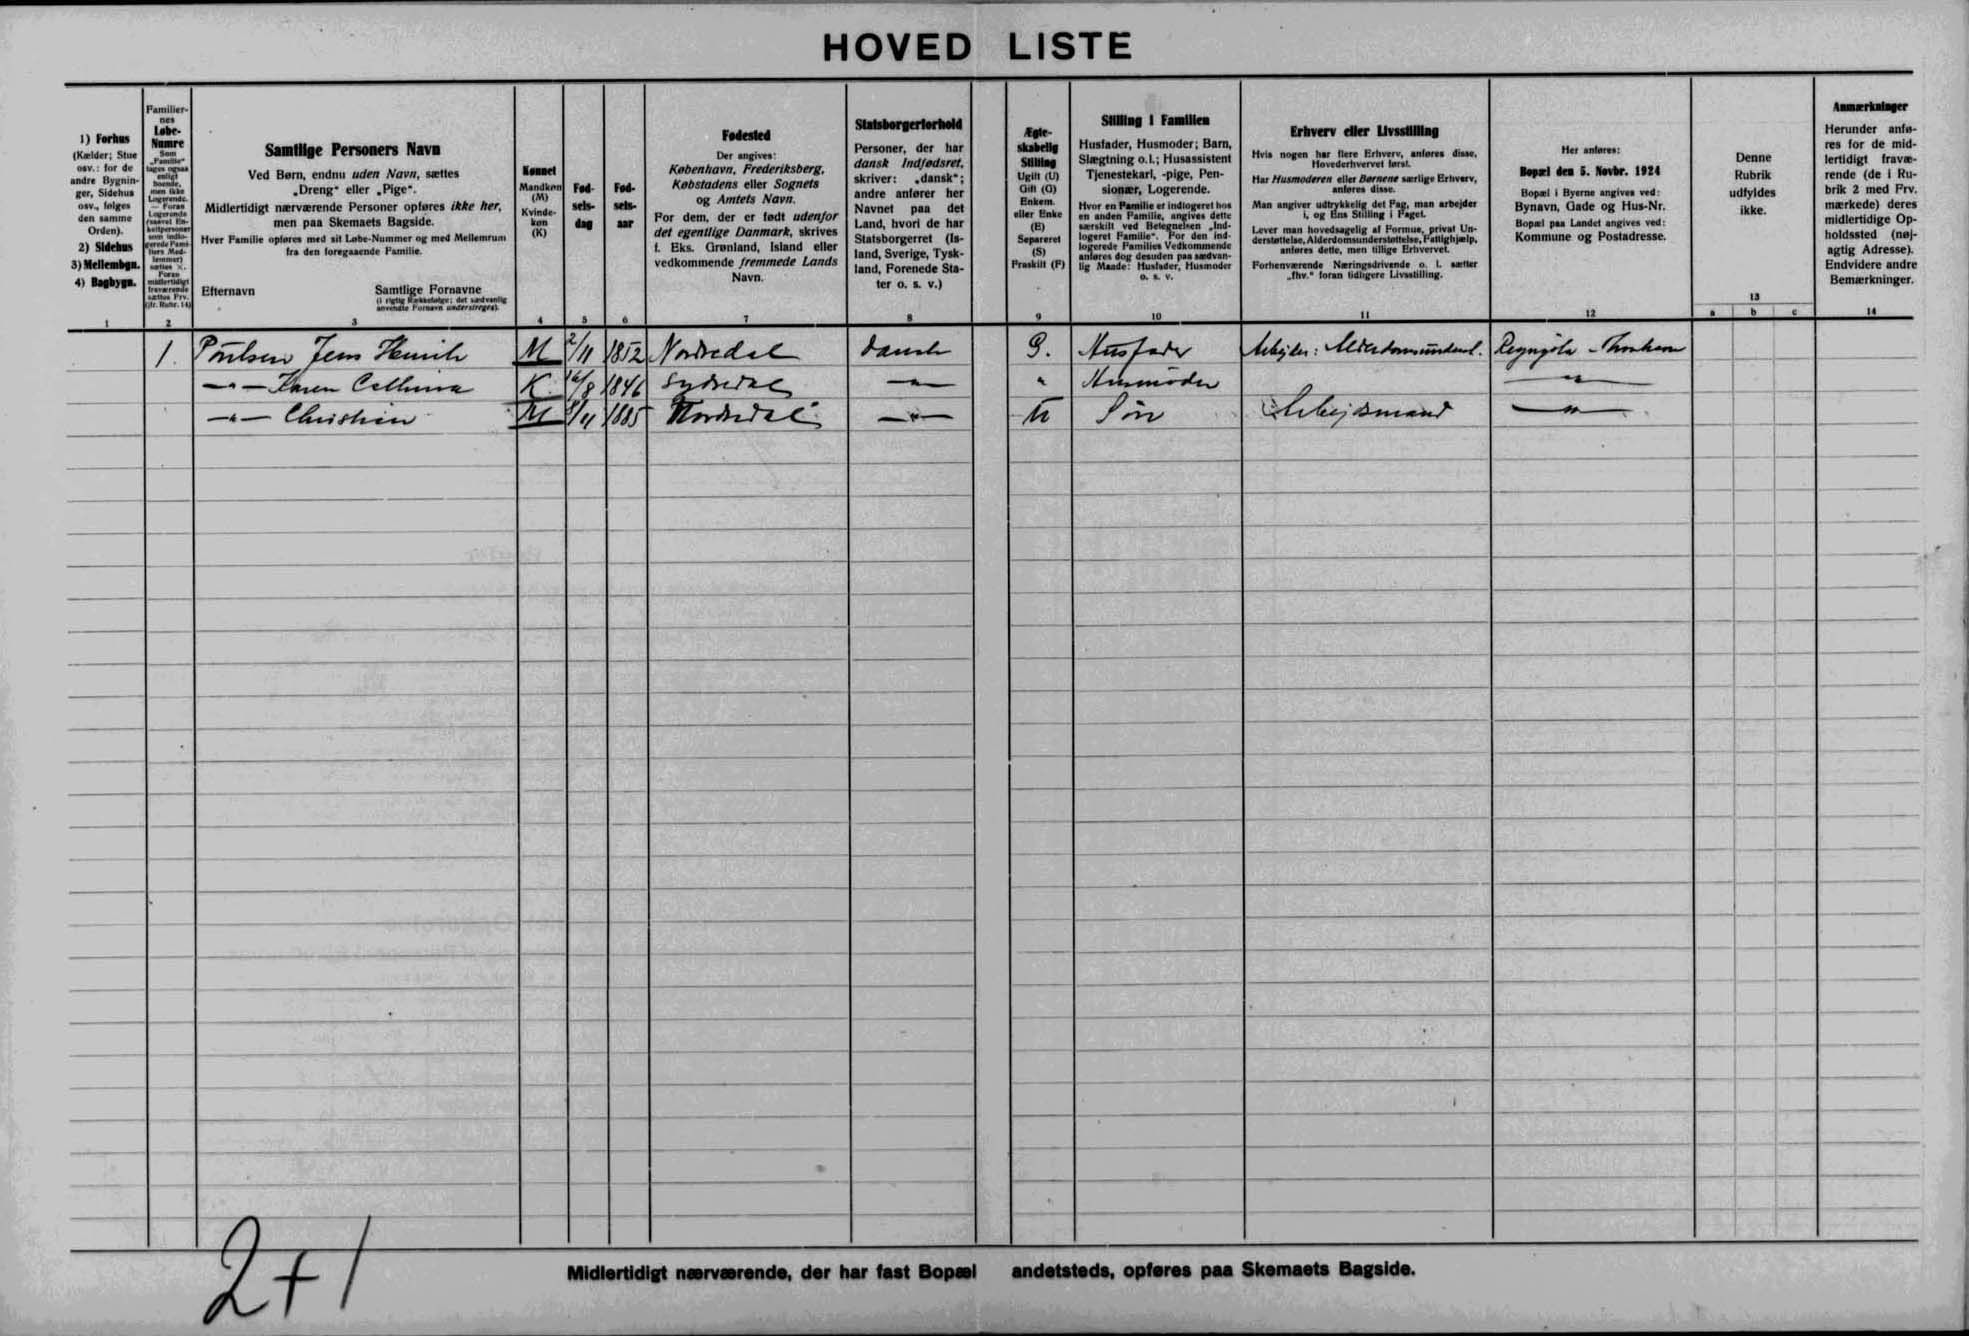 HOVED LISTE
1) Forhus
(Kælder; Stue
osv.: for de
andre Bygnin-
ger, Sidehus
osv., følges
den samme
Orden).
2) Sidehus
3) Mellembgn.
4) Bagbygn.
1
Familier-
nes
Løbe-
Numre
Som
„Familie"
tages ogsaa
enligt
boende,
men ikke
Logerende.
— Foran
Logerende
(saavel En-
keltpersoner
som indlo-
gerede Fami-
liers Med-
lemmer)
sættes ×.
Foran
midlertidigt
fraværende
sættes Frv.
(jfr. Rubr. 14)
2
Samtlige Personers Navn
Ved Børn, endnu uden Navn, sættes
„Dreng" eller „Pige".
Midlertidigt nærværende Personer opføres ikke her,
men paa Skemaets Bagside.
Hver Familie opføres med sit Løbe-Nummer og med Mellemrum
fra den foregaaende Familie.
Efternavn Samtlige Fornavne
(i rigtig Rækkefølge; det sædvanlig
anvendte Fornavn understreges).
3
Kønnet
Mandkøn
(M)
Kvinde-
køn
(K)
4
Fød-
sels-
dag
5
Fød-
sels-
aar
6
Fødested
Der angives:
København, Frederiksberg,
Købstadens eller Sognets
og Amtets Navn.
For dem, der er født udenfor
det egentlige Danmark, skrives
f. Eks. Grønland, Island eller
vedkommende fremmede Lands
Navn.
7
Statsborgerforhold
Personer, der har
dansk Indfødsret,
skriver: „dansk";
andre anfører her
Navnet paa det
Land, hvori de har
Statsborgerret (Is-
land, Sverige, Tysk-
land, Forenede Sta-
ter o. s. v.)
8
Ægte-
skabelig
Stilling
Ugift (U)
Gift (G)
Enkem.
eller Enke
(E)
Separeret
(S)
Fraskilt (F)
9
Stilling i Familien
Husfader, Husmoder; Barn,
Slægtning o.l.; Husassistent
Tjenestekarl, -pige, Pen-
sionær, Logerende.
Hvor en Familie er indlogeret hos
en anden Familie, angives dette
særskilt ved Betegnelsen „Ind-
logeret Familie". For den ind-
logerede Families Vedkommende
anføres dog desuden paa sædvan-
lig Maade: Husfader, Husmoder
o. s. v.
10
Erhverv eller Livsstilling
Hvis nogen har flere Erhverv, anføres disse,
Hovederhvervet først.
Har Husmoderen eller Børnene særlige Erhverv,
anføres disse.
Man angiver udtrykkelig det Fag, man arbejder
i, og Ens Stilling i Faget.
Lever man hovedsagelig af Formue, privat Un-
derstøttelse, Alderdomsunderstøttelse, Fattighjælp,
anføres dette, men tillige Erhvervet.
Forhenværende Næringsdrivende o. l. sætter
„fhv." foran tidligere Livsstilling.
11
Her anføres:
Bopæl den 5. Novbr. 1924
Bopæl i Byerne angives ved:
Bynavn, Gade og Hus-Nr.
Bopæl paa Landet angives ved:
Kommune og Postadresse.
12
Denne
Rubrik
udfyldes
ikke.
13
a b c
Anmærkninger
Herunder anfø-
res for de mid-
lertidigt fravæ-
rende (de i Ru-
brik 2 med Frv.
mærkede) deres
midlertidige Op-
holdssted (nøj-
agtig Adresse).
Endvidere andre
Bemærkninger.
14
1. Poulsen Jens Henrik M 2/11 1852 Nordredal dansk G. Husfader Arbejder: Alderdomsunderst. Reyngøta - Thorshavn
—"— Karen Cathrina K 16/8 1846 Sydredal —"— " Husmoder —"—
—"— Christian M /11 1885 Nordredal —"— U Søn Arbejdsmand —"—
2+1
Midlertidigt nærværende, der har fast Bopæl andetsteds, opføres paa Skemaets Bagside.